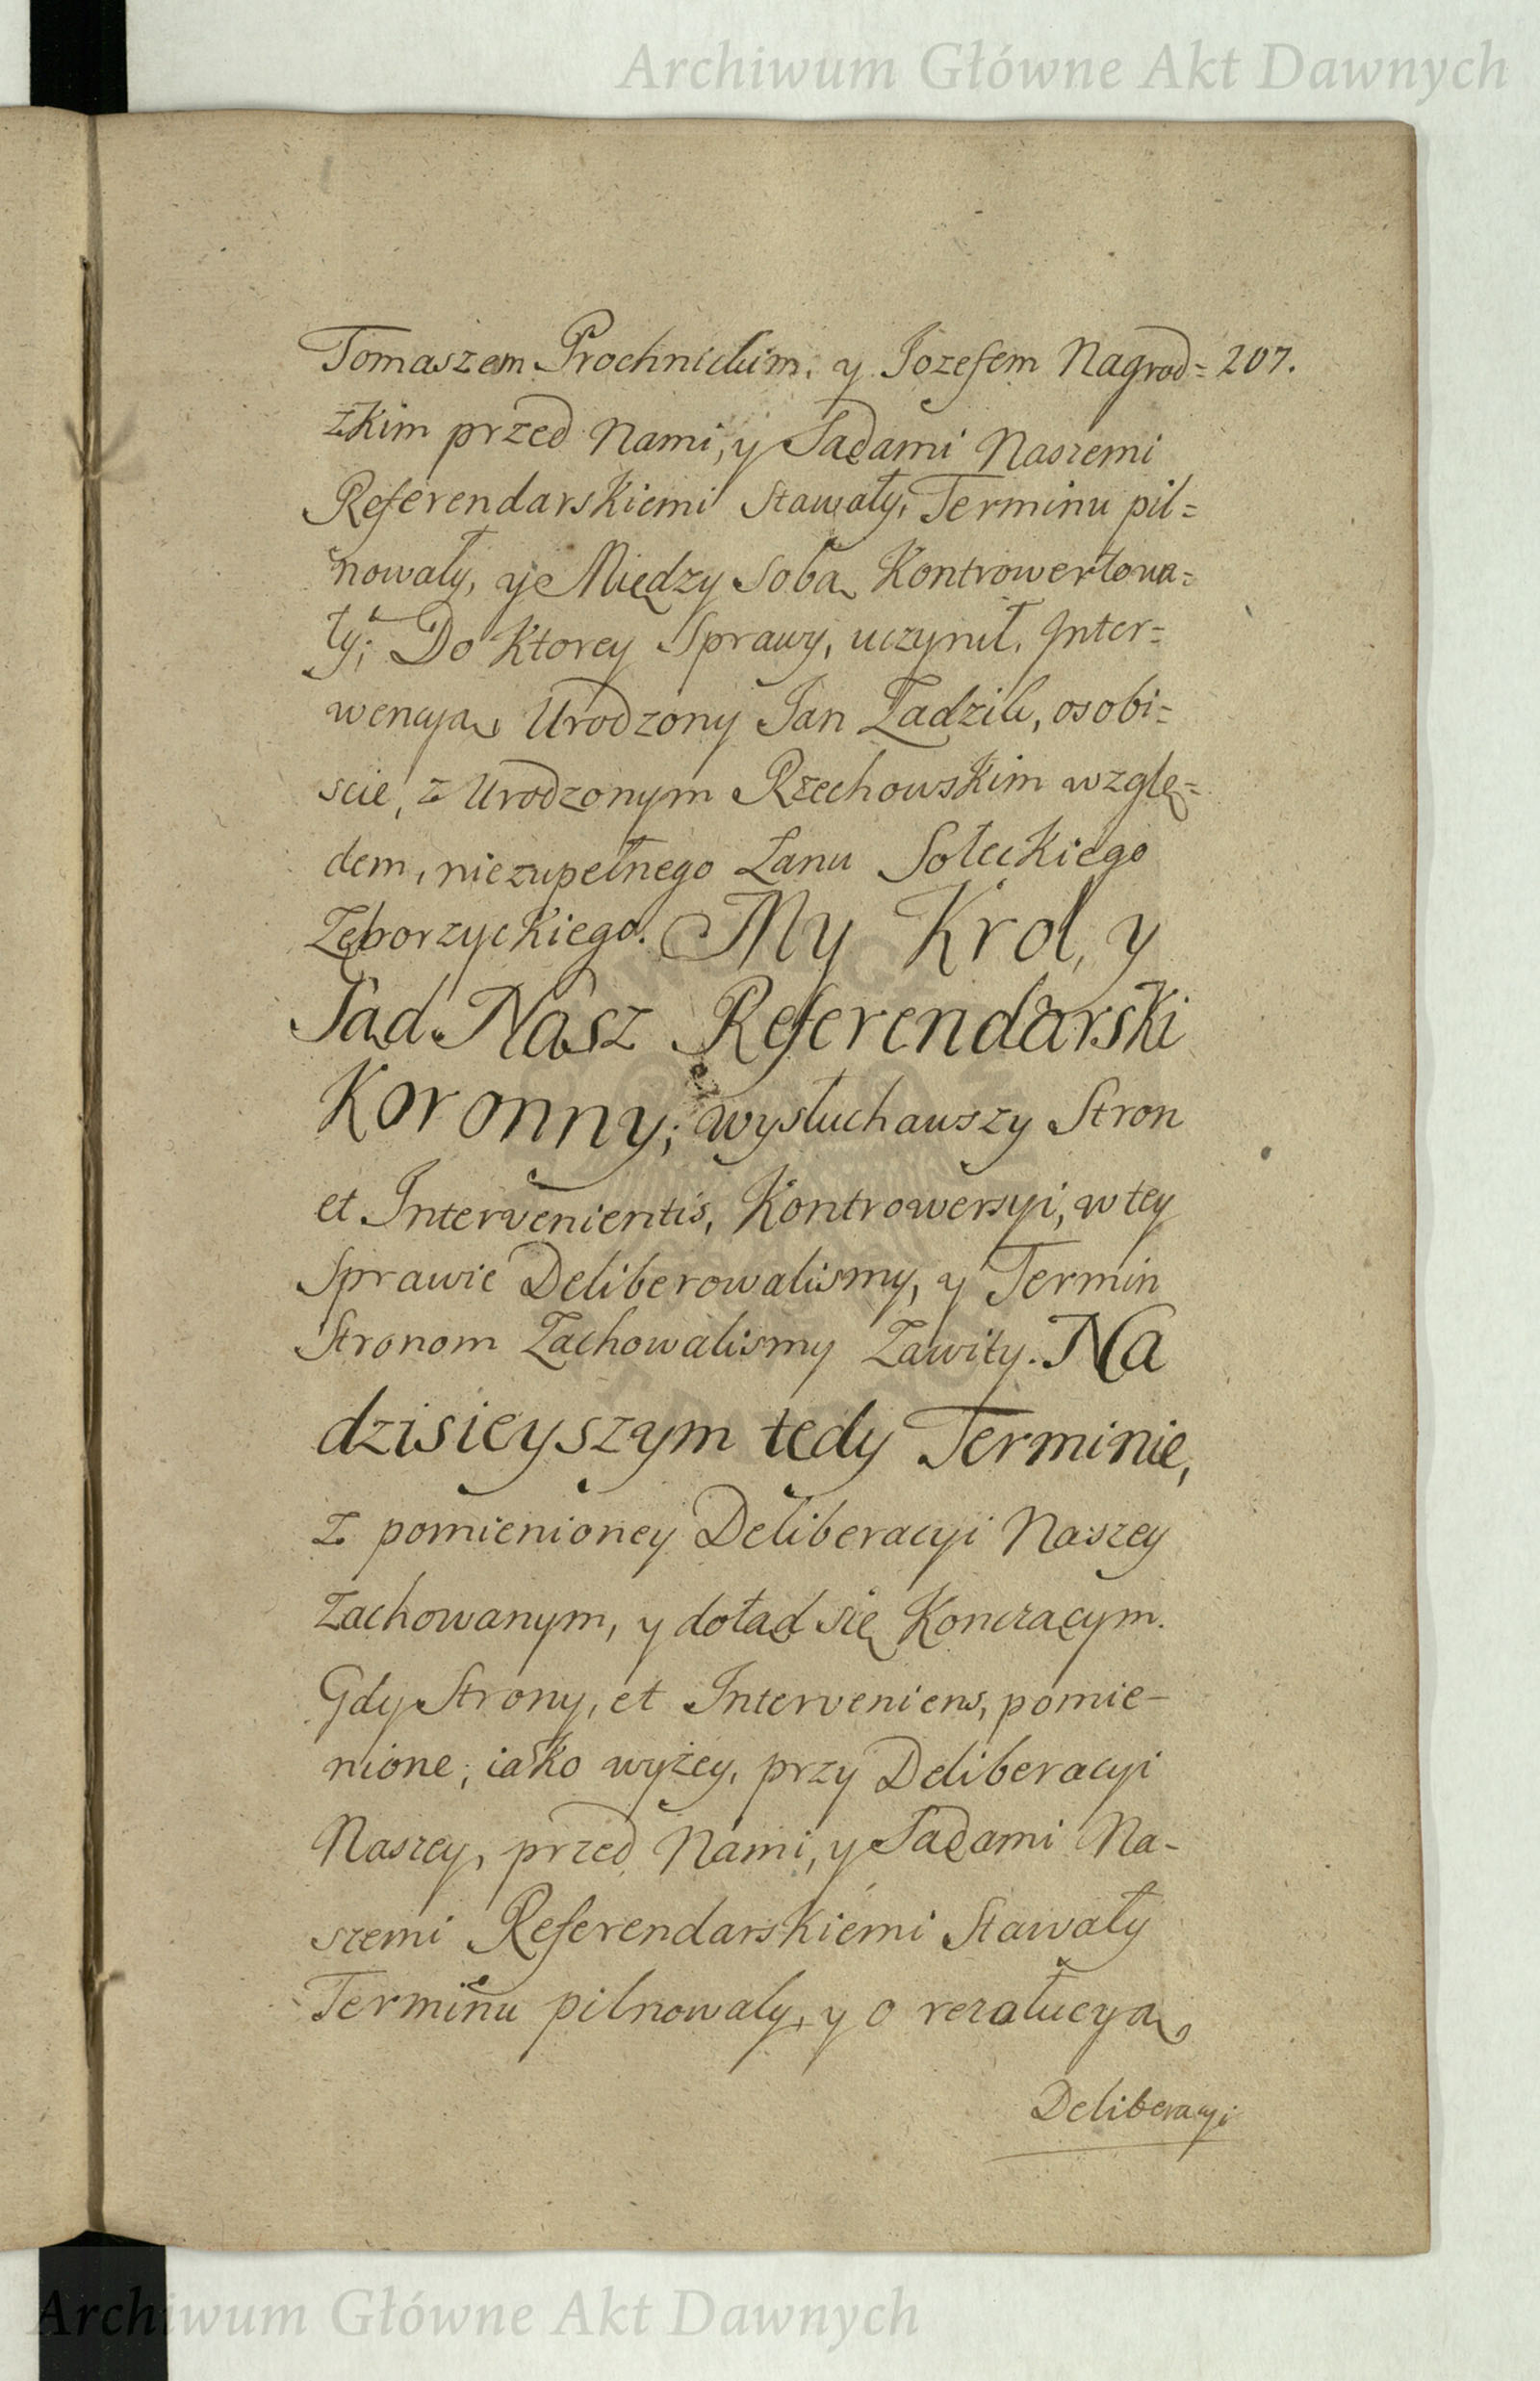 Archiwum Główne Akt Dawnych
Tomaszem Prochnickim, y Jozefem Nagrod= 207.
zkim przed Nami, y Sądami Naszemi
Referendarskiemi Stawały, Terminu pil=
nowały, y Między Sobą Kontrowertowa=
ły; Do Ktorey Sprawy, uczynił, Inter=
wencyą, Urodzony Jan Zadzik, osobi=
scie, z Urodzonym Rzechowskim wzglę=
dem, niezupełnego Łanu Sołeckiego
Zęborzyckiego. My Krol, y
Sąd Nasz Referendarski
Koronny; wysłuchawszy Stron
et Intervenientis, Kontrowersyi, w tey
Sprawie Deliberowalismy, y Termin
Stronom Zachowalismy Zawity. Na
dzisieyszym tedy Terminie,
z pomienioney Deliberacyi Naszey
Zachowanym, y dotąd się Konczącym.
Gdy Strony, et Interveniens, pomie-
nione, iako wyżey, przy Deliberacyi
Naszey, przed Nami, y Sądami Na-
szemi Referendarskiemi Stawały
Terminu pilnowały, y o rezolucyą,
Deliberacyi
Archiwum Główne Akt Dawnych